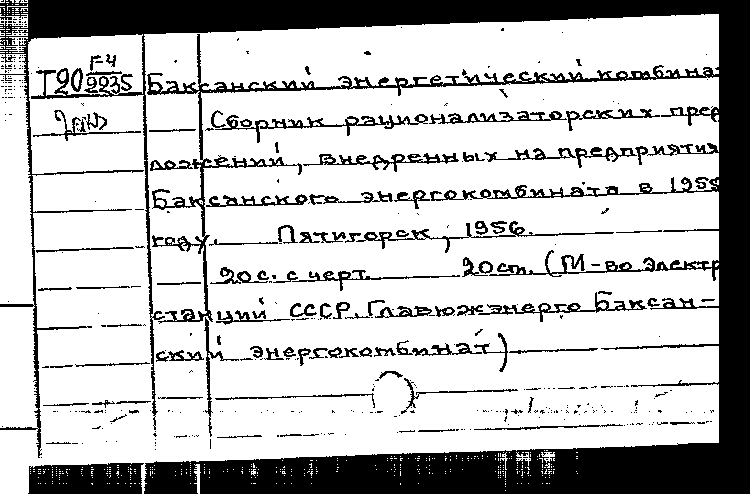 Г4
Т20 9935 Баксанский энергетический комбина
Сборник рационализаторских пред
ложений, внедренных на предприятия
Баксанского энергокомбината в 195
году. Пятигорск, 1956.
20с. с черт. 20см. (М-во электр
станций СССР. Главюжэнерго Баксан-
ский энергокомбинат)